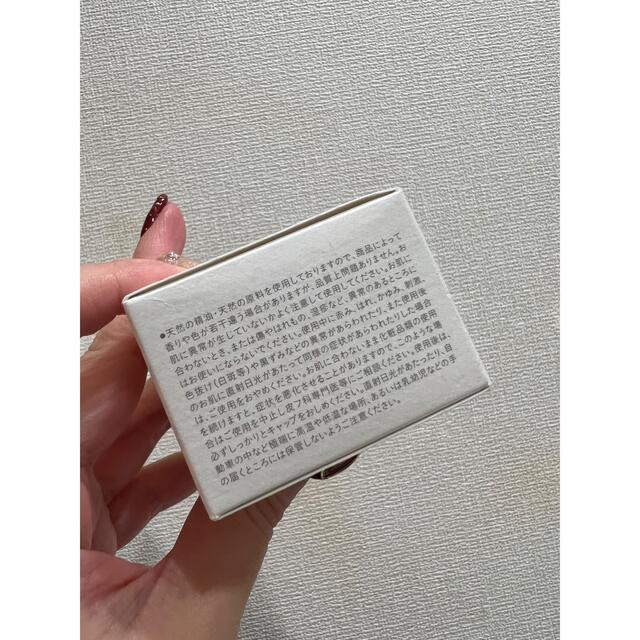 ●天然の精油・天然の原料を使用しておりますので、商品によって
香りや色が若干違う場合がありますが、品質上問題ありません。お
肌に異常が生じていないかよく注意して使用してください。お肌に
合わないとき、または傷やはれもの、湿疹など、異常のあるところに
はお使いにならないでください。使用中に赤み、はれ、かゆみ、刺激、
色抜け(白斑等)や黒ずみなどの異常があらわれたり、また使用後
のお肌に直射日光があたって同様の症状があらわれたりした場合
は、ご使用をおやめください。お肌に合わないまま化粧品類の使用
を続けますと、症状を悪化させることがありますので、このような場
合はご使用を中止し皮フ科専門医等にご相談ください。使用後は、
必ずしっかりとキャップをおしめください。直射日光があたったり、自
動車の中など極端に高温や低温な場所、あるいは乳幼児などの手
の届くところには保管しないようご注意ください。